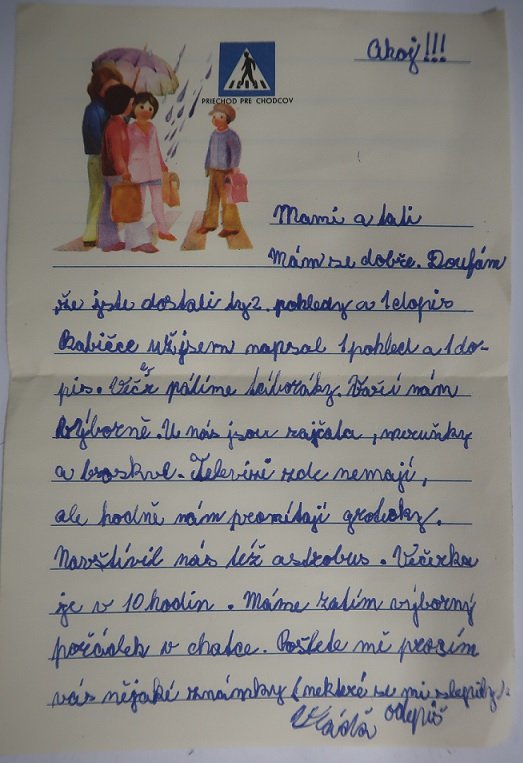 Ahoj!!!
PRIECHOD PRE CHODCOV
Mami a tati
Mám se dobře. Doufám
že jste dostali ty 2. pohledy a 1 dopis
Babičce už jsem napsal 1 pohled a 1 do-
pis. Večer pálíme táboráky. Vaří nám
výborně. U nás jsou rajčata, meruňky
a broskve. Televizi zde nemají,
ale hodně nám promítají grotesky.
Navštívil nás též astrobus. Večerka
je v 10 hodin. Máme zatím výborný
pořádek v chatce. Pošlete mě prosím
vás nějaké známky (některé se mi slepily).
Vláďa odepiš